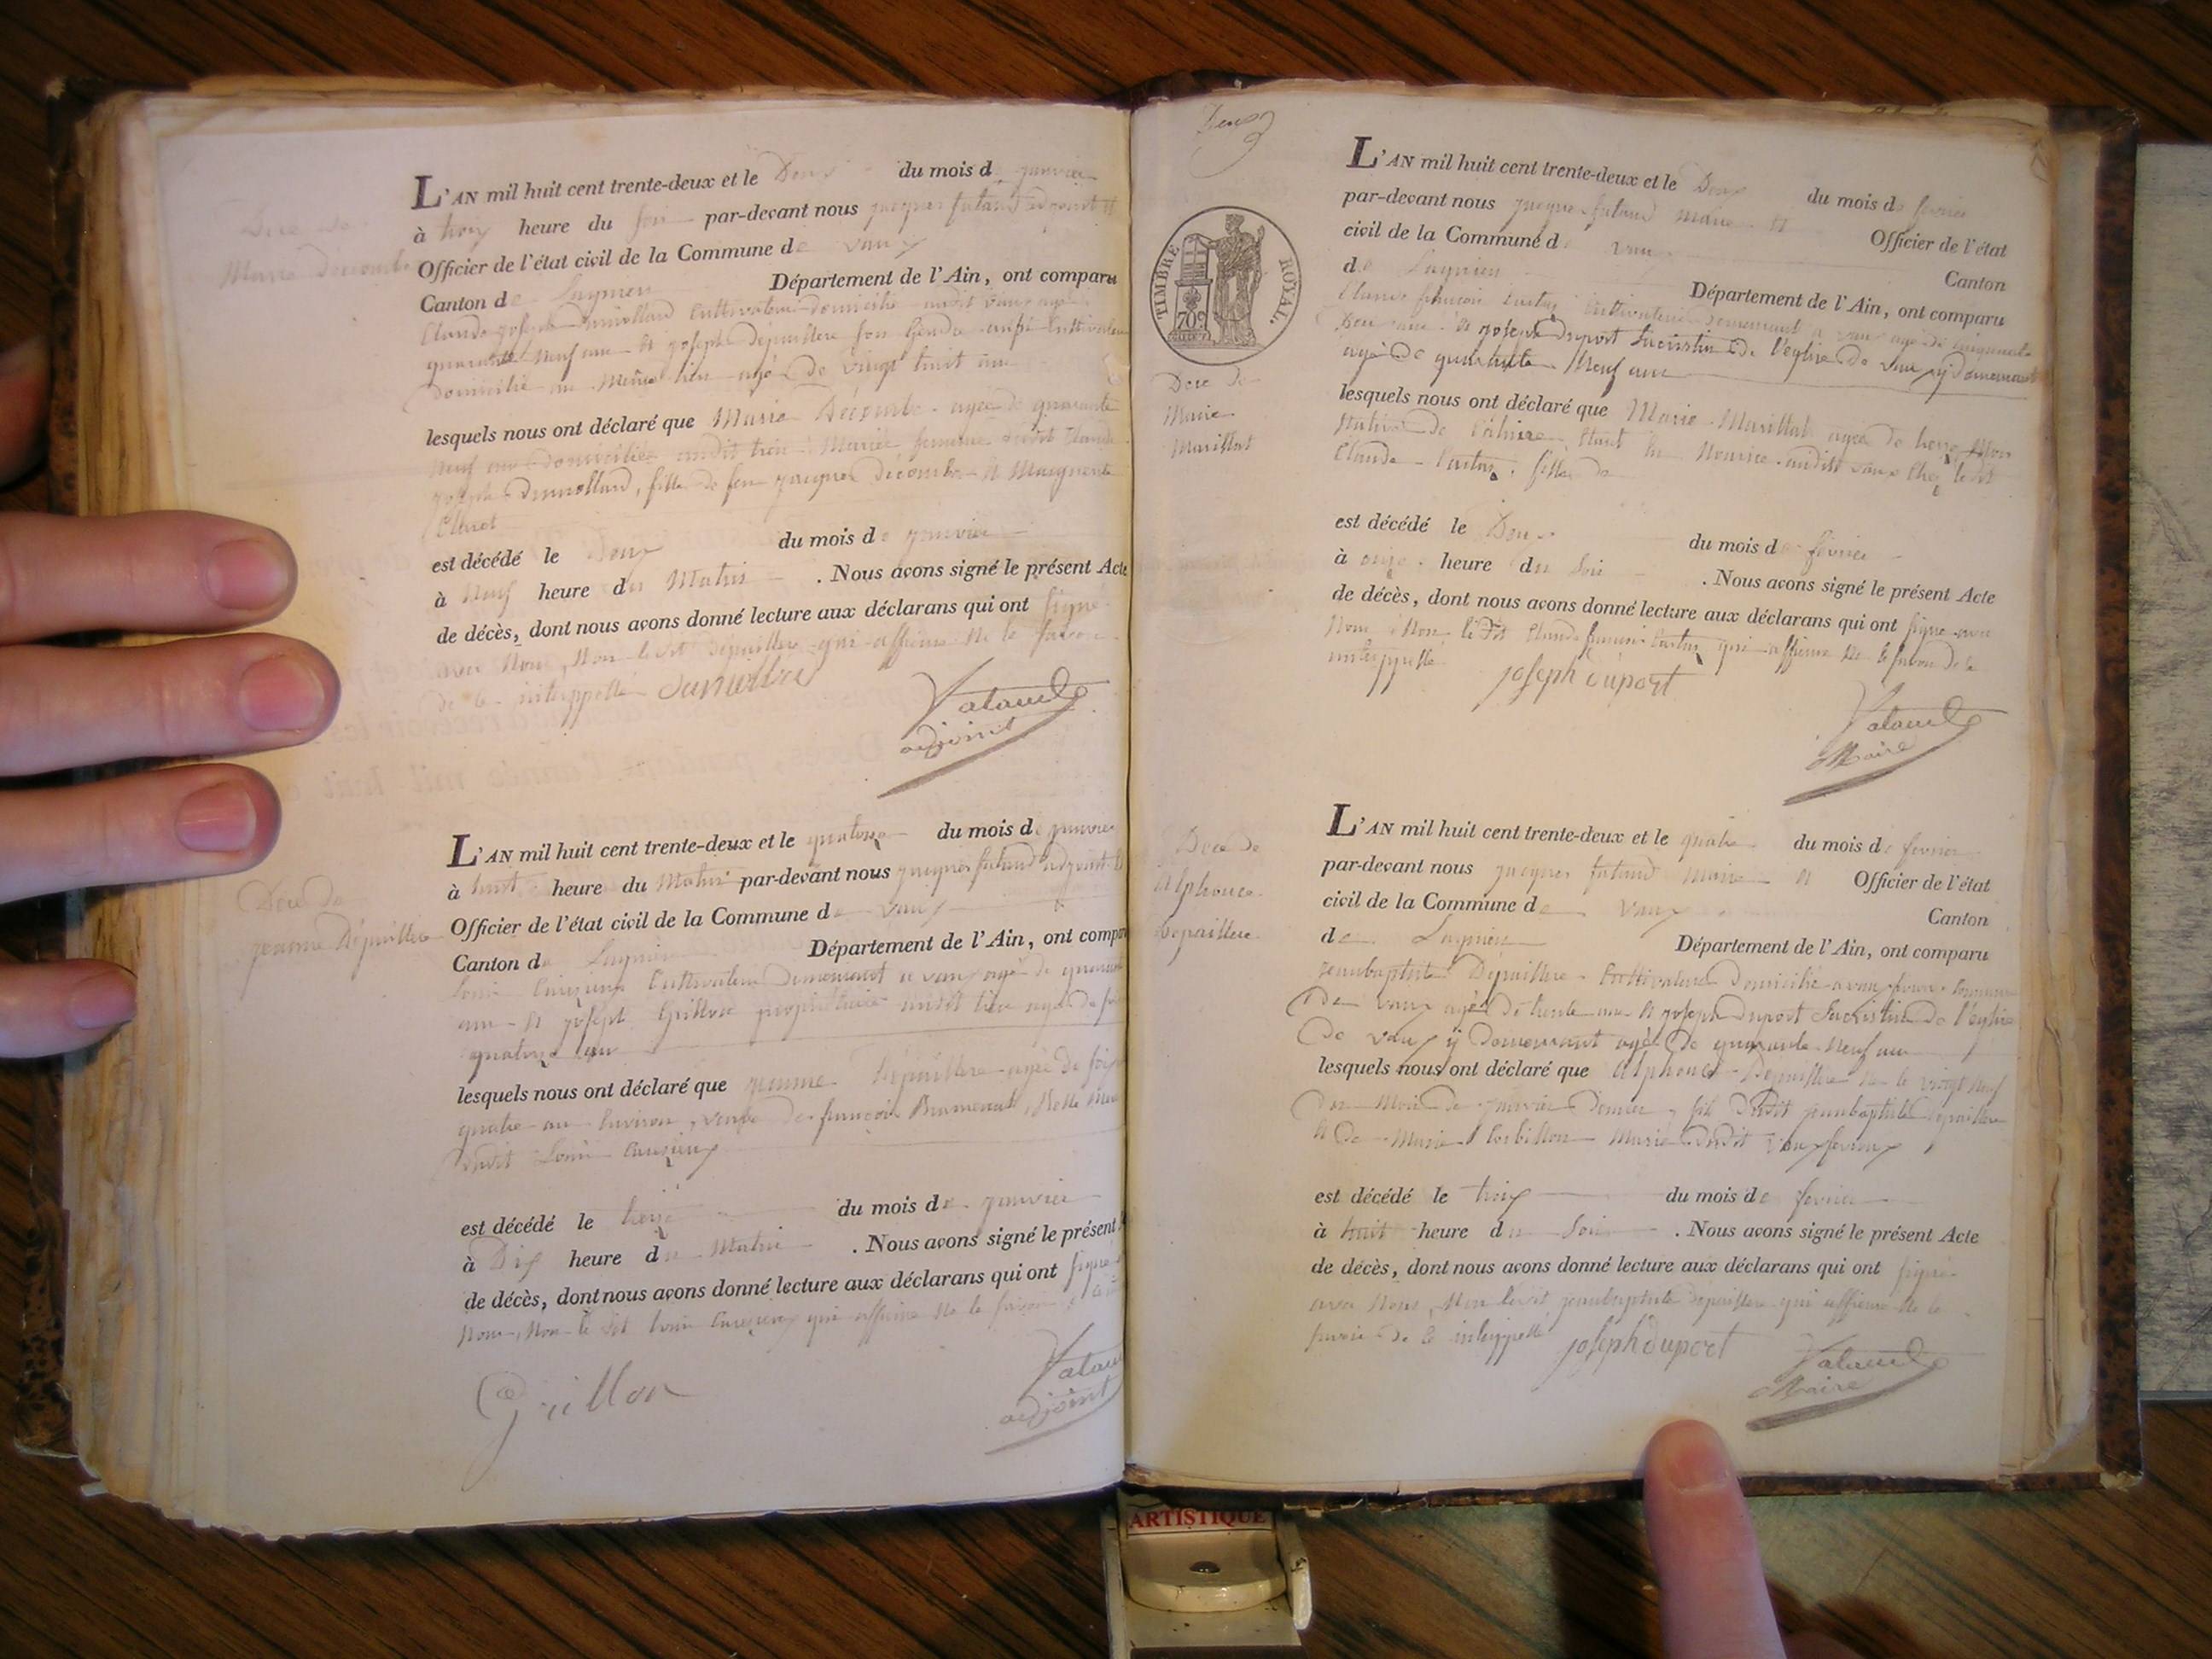 Dece de
Marie Decombe
L'AN mil huit cent trente-deux et le Deux du mois de janvier
à trois heure du soir par-devant nous jacques fataud adjoint et
Officier de l'état civil de la Commune de vaux
Canton de Lagnieu Département de l'Ain, ont comparu
Claude joseph Dumollard Cultivateur domicilié audit vaux agé
quarante neuf ans et joseph dépaillere son Gendre aussi Cultivateur
domicilié au même lieu agé de vingt huit ans
lesquels nous ont déclaré que Marie Décombe agée de quarante
neuf ans domiciliée audit lieu Mariée femme dudit Claude
joseph Dumollard, fille de feu jacques décombe et Marguerite
est décédé le Deux du mois de janvier
à Neuf heure du Matin . Nous avons signé le présent Acte
de décès, dont nous avons donné lecture aux déclarans qui ont signé
avec Nous, Non ledit dépaillere qui affirme ne le savoir
de ce interppellé Dumollard
Fataud
adjoint
Dece de
jeanne Dépaillere
L'AN mil huit cent trente-deux et le quatorze du mois de janvier
à huit heure du Matin par-devant nous jacques fataud adjoint et
Officier de l'état civil de la Commune de vaux
Canton de Lagnieu Département de l'Ain, ont compa
Louis Cultivateur demeurant a vaux agé de quarante
ans et joseph Grillon propriétaire audit lieu agé de
quatorze ans
lesquels nous ont déclaré que jeanne Dépaillere agée de
quatre ans Environ, veuve de françois Belle mere
dudit Louis
est décédé le treize du mois de janvier
à Dix heure du Matin . Nous avons signé le présent
de décès, dont nous avons donné lecture aux déclarans qui ont signé
Nous, Non le dit Louis qui affirme ne le savoir
Grillon
Fataud
adjoint
Deux
TIMBRE ROYAL.
70c
Dece de
Marie
Marillat
L'AN mil huit cent trente-deux et le Deux du mois de fevrier
par-devant nous jacques fataud maire et Officier de l'état
civil de la Commune de vaux Canton
de Lagnieu Département de l'Ain, ont comparu
Claude françois Cultivateur demeurant a vaux agé de cinquante
Deux ans et joseph duport Sacristin de l'eglise de vaux y demeurant
agé de quarante Neuf ans
lesquels nous ont déclaré que Marie Marillat agée de treize Mois
Native de Etant en Nourice audit vaux chez ledit
Claude fille de
est décédé le Deux du mois de fevrier
à onze heure du Soir . Nous avons signé le présent Acte
de décès, dont nous avons donné lecture aux déclarans qui ont signé avec
Nous Non le dit Claude françois qui affirme ne le savoir de ce
interppellé joseph duport
Fataud
Maire
Dece de
Alphonce
Depaillere
L'AN mil huit cent trente-deux et le quatre du mois de fevrier
par-devant nous jacques fataud maire et Officier de l'état
civil de la Commune de vaux Canton
de Lagnieu Département de l'Ain, ont comparu
jeanbaptiste Dépaillere Cultivateur Domicilié a vaux fevroux commune
De vaux agé de trente ans et joseph duport Sacristin de l'eglise
de vaux y demeurant agé de quarante Neuf ans
lesquels nous ont déclaré que Alphonce Depaillere né le vingt neuf
du Mois de janvier Dernier, fils dudit jeanbaptiste depaillere
et de Marie Corbillon Mariés dudit vaux fevroux
est décédé le trois du mois de fevrier
à huit heure du Soir . Nous avons signé le présent Acte
de décès, dont nous avons donné lecture aux déclarans qui ont signé
avec Nous, Non ledit jeanbaptiste depaillere qui affirme ne le
savoir de ce interppellé joseph duport
Fataud
Maire
ARTISTIQUE